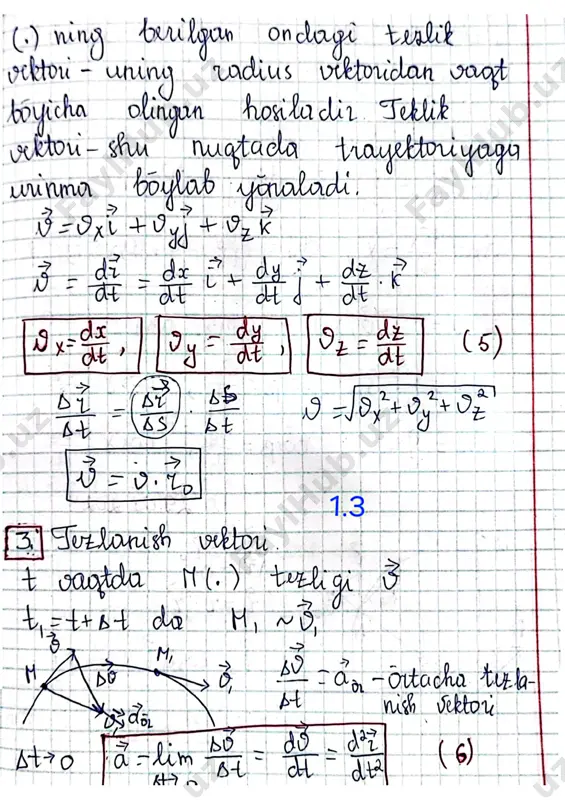 (.) ning berilgan ondagi tezlik
vektori - uning radius vektoridan vaqt
bo̅yicha olingan hosiladir. Tezlik
vektori - shu nuqtada trayektoriyaga
urinma bo̅ylab yo̅naladi.
ϑ⃗ = ϑₓi⃗ + ϑᵧj⃗ + ϑ_z k⃗
ϑ⃗ = dr⃗/dt = dx/dt i⃗ + dy/dt j⃗ + dz/dt · k⃗
ϑₓ = dx/dt, ϑᵧ = dy/dt, ϑ_z = dz/dt (5)
Δr⃗/Δt = Δr⃗/ΔS · ΔS/Δt ϑ = √(ϑₓ² + ϑᵧ² + ϑ_z²)
ϑ⃗ = ϑ · r⃗₀
1.3
3. Tezlanish vektori.
t vaqtda M(.) tezligi ϑ⃗
t₁ = t + Δt da M₁ ~ ϑ⃗₁
ϑ⃗ M Δϑ⃗ M₁ ϑ⃗₁ ϑ⃗₁ a⃗o̅r
Δϑ⃗/Δt = a⃗o̅r - o̅rtacha tezla-
nish vektori
Δt → 0 a⃗ = lim Δϑ⃗/Δt = dϑ⃗/dt = d²r⃗/dt² (6)
FaylHub.uz